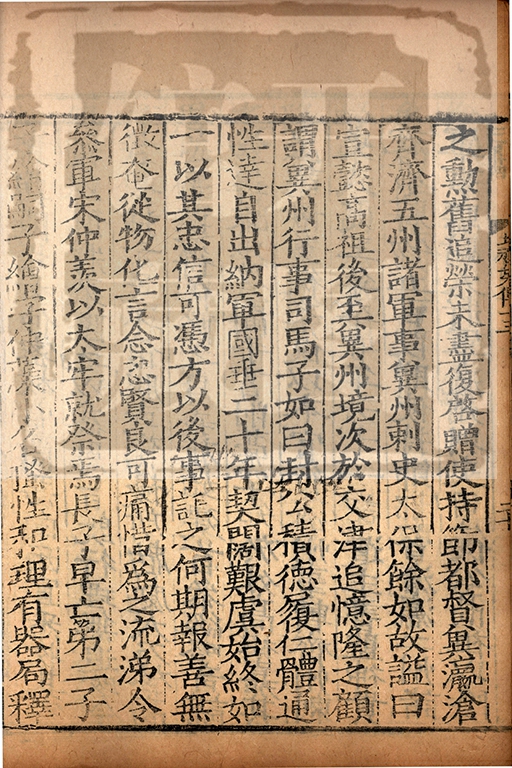 之勲舊追榮未盡復啓贈使持節都督兾瀛滄
齊濟五州諸軍事兾州刺史太保餘如故謚曰
宣懿高祖後至兾州境次於交津追憶隆之顧
謂兾州行事司馬子如曰封公積德履仁體通
性達自出納軍國垂二十年契闊艱虞始終如
一以其忠信可憑方以後事託之何期報善無
徵奄從物化言念忠賢良可痛惜爲之流涕令
叅軍宋仲羨以太牢就祭焉長子早亡第二子
子繪嗣子繪字仲藻小名性和理有器局釋